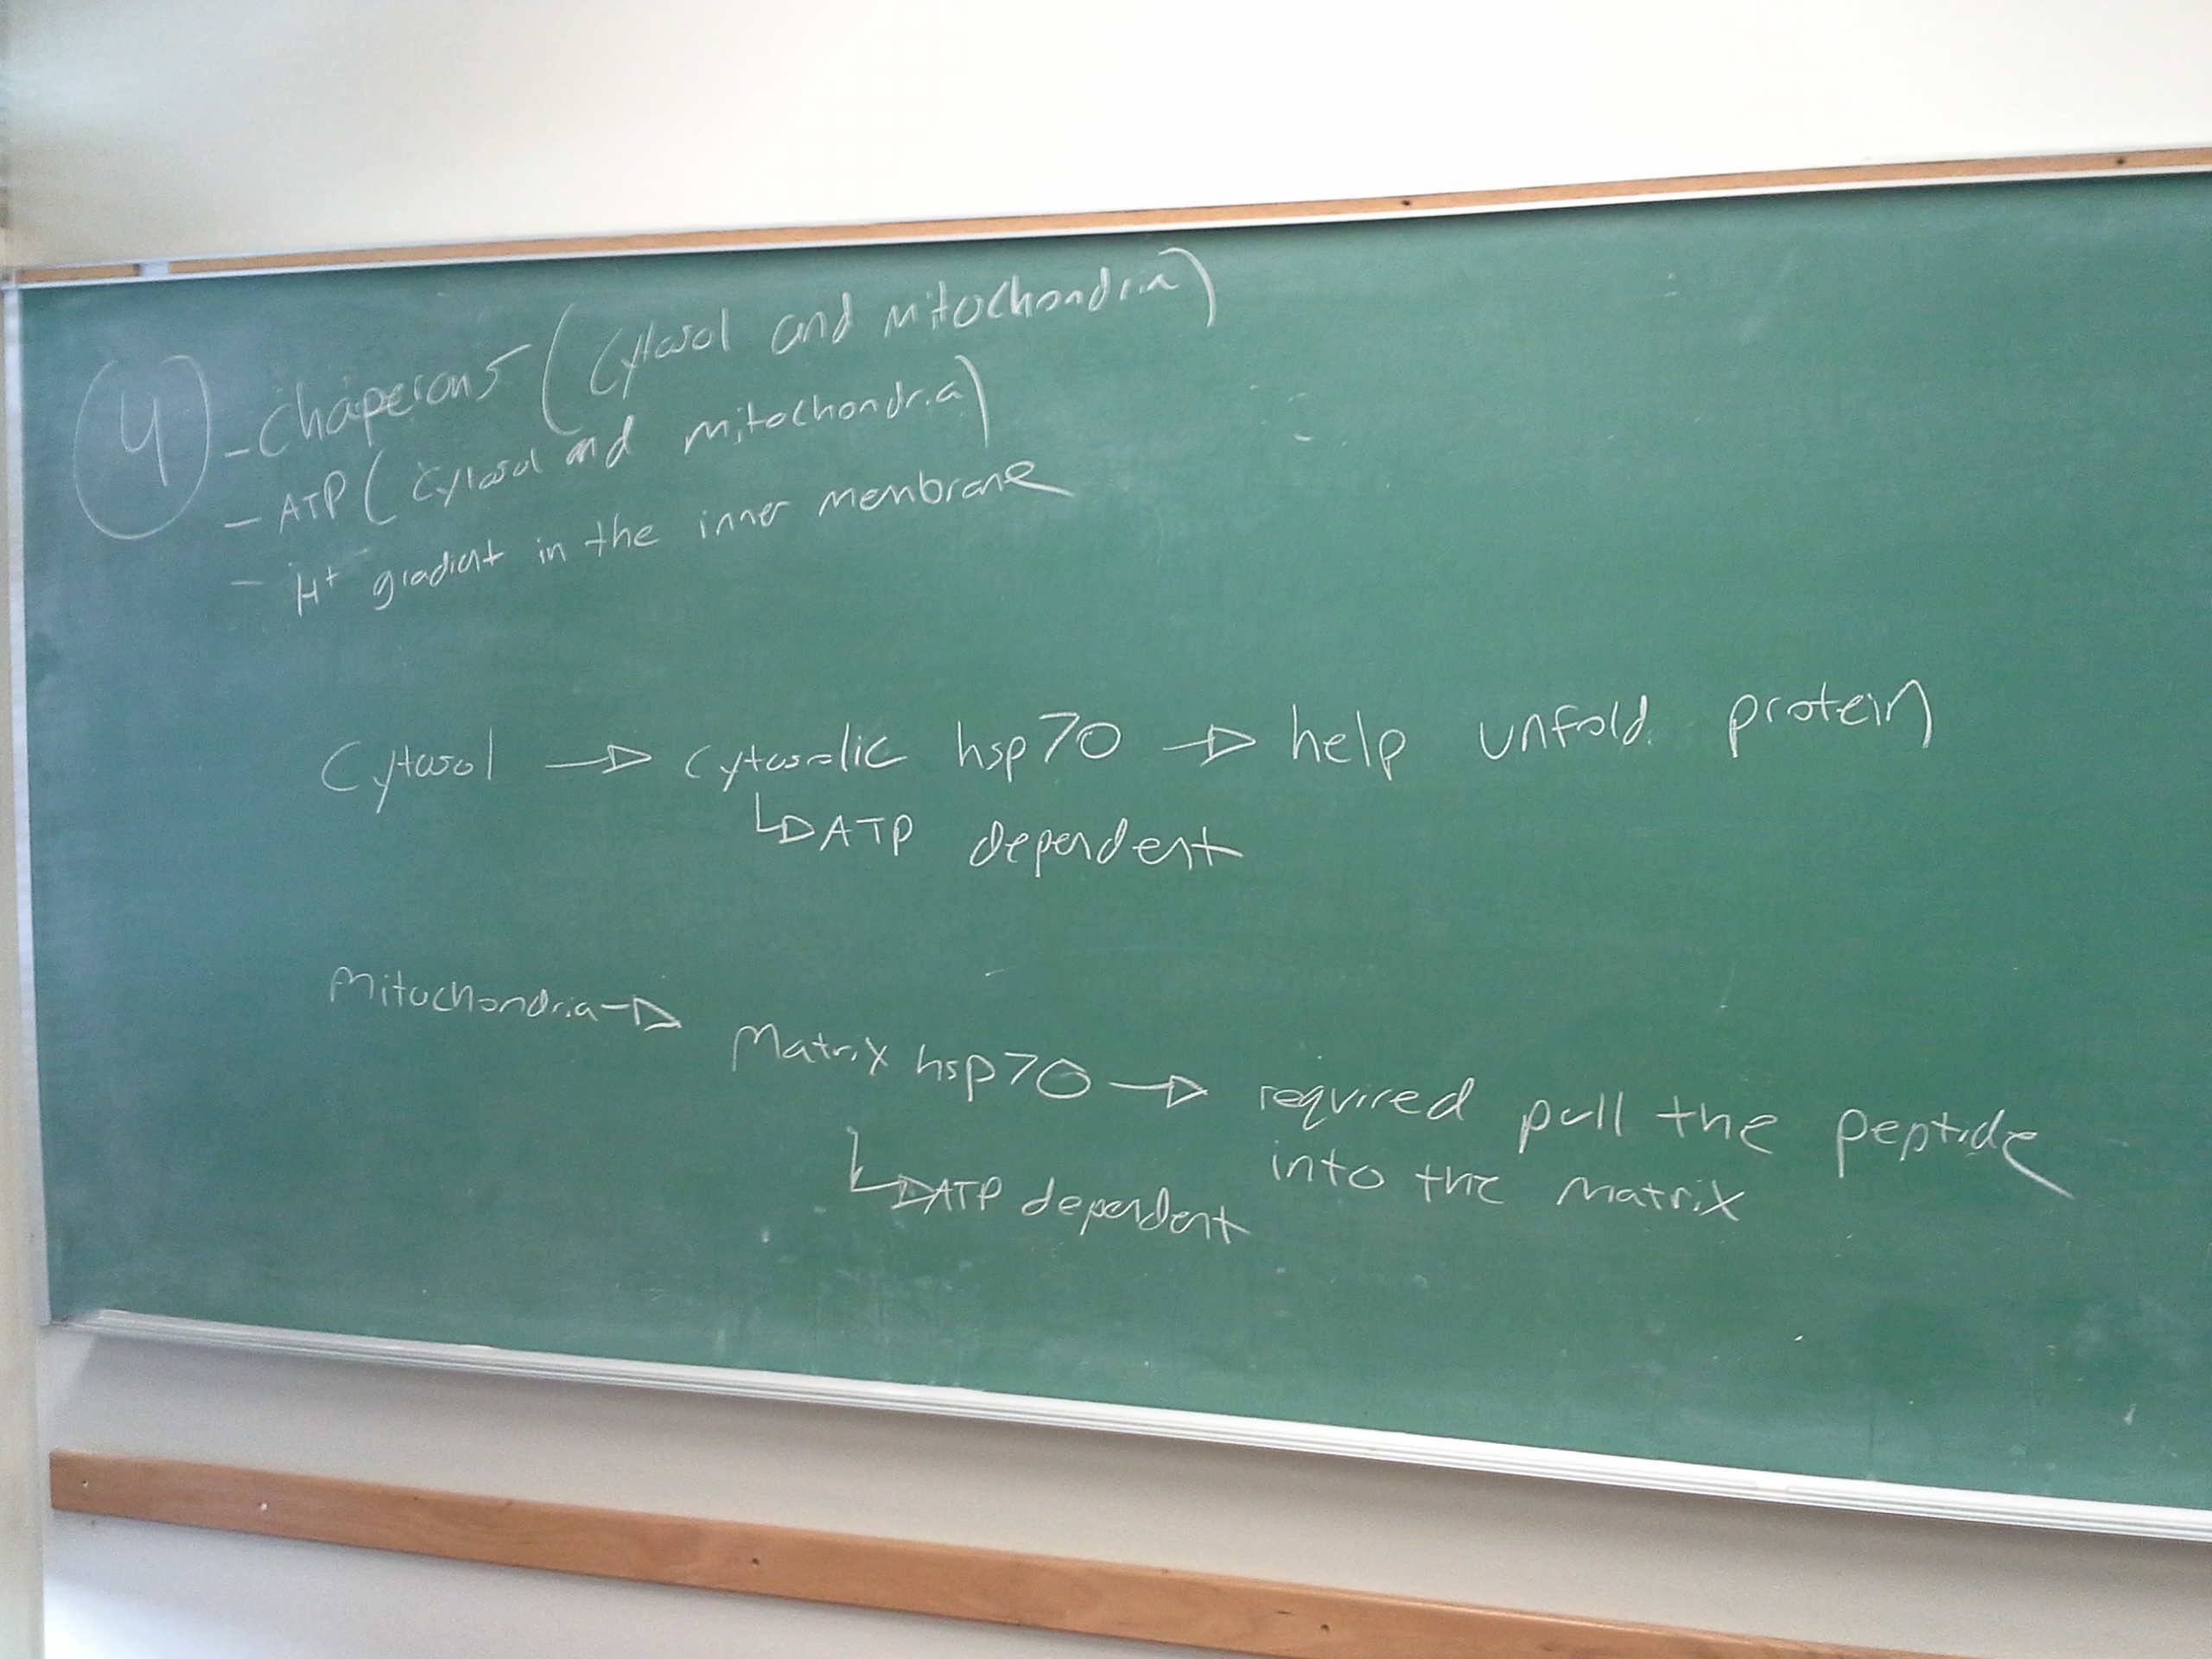 4 - Chaperons (Cytosol and mitochondria)
- ATP (Cytosol and mitochondria)
- H+ gradient in the inner membrane
Cytosol → Cytosolic hsp70 → help unfold protein
↳ ATP dependent
Mitochondria →
Matrix hsp70 → required pull the peptide
into the matrix
↳ ATP dependent